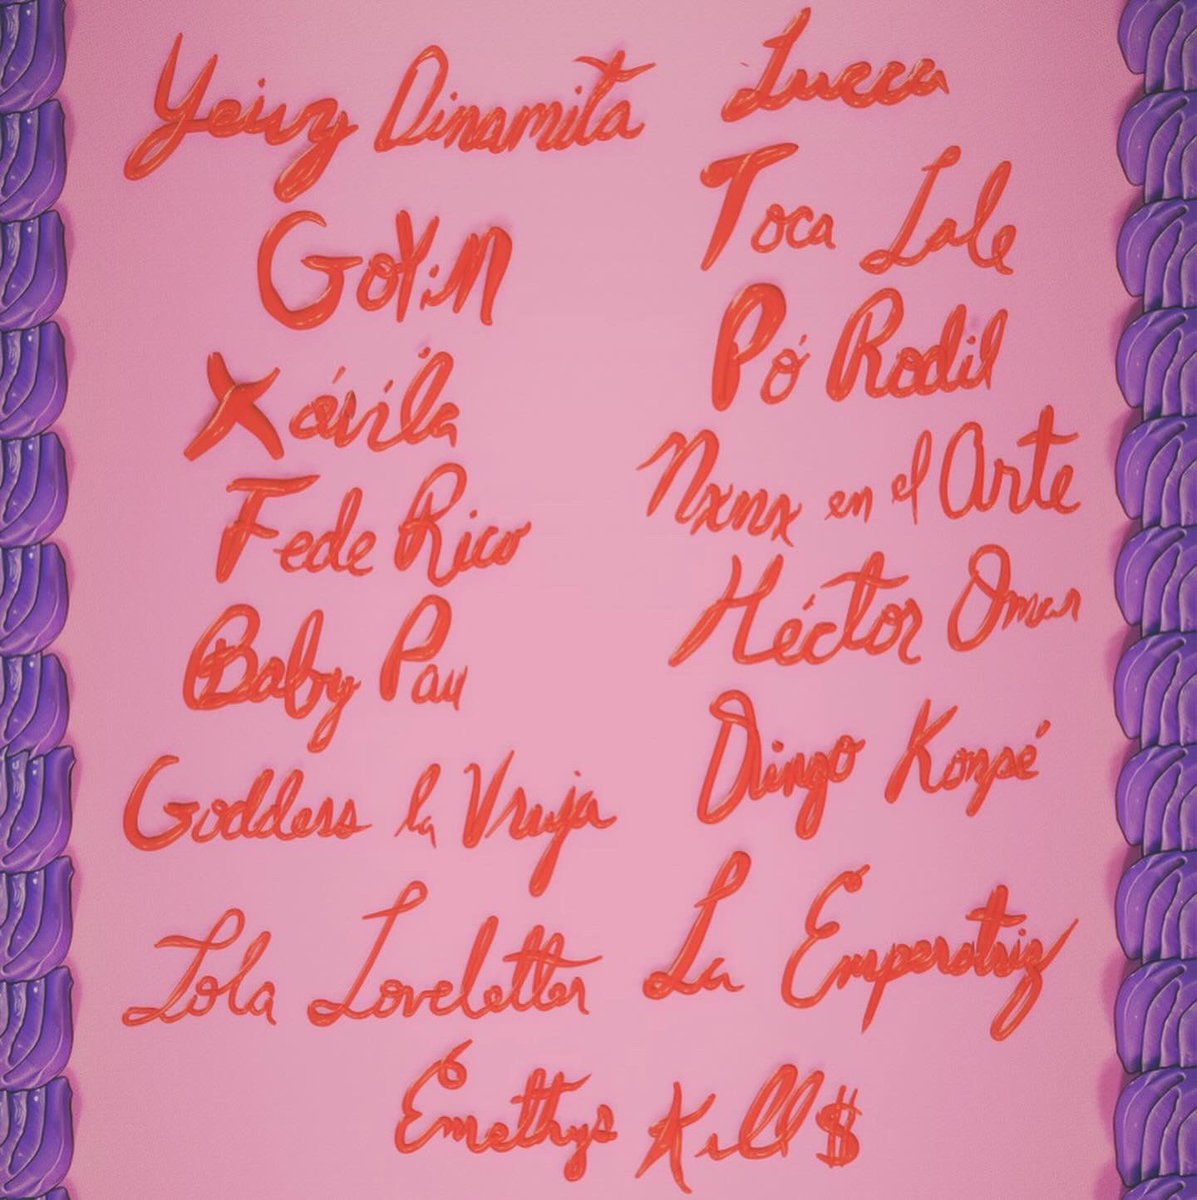 Yeivy Dinamita
Lucca
GoYin
Toca Lale
Xávila
Pó Rodil
Fede Rico
Nxnx en el Arte
Baby Pau
Héctor Omar
Goddess la Vruja
Dingo Konpé
Lola Loveletter
La Emperatriz
Emethys Kill$